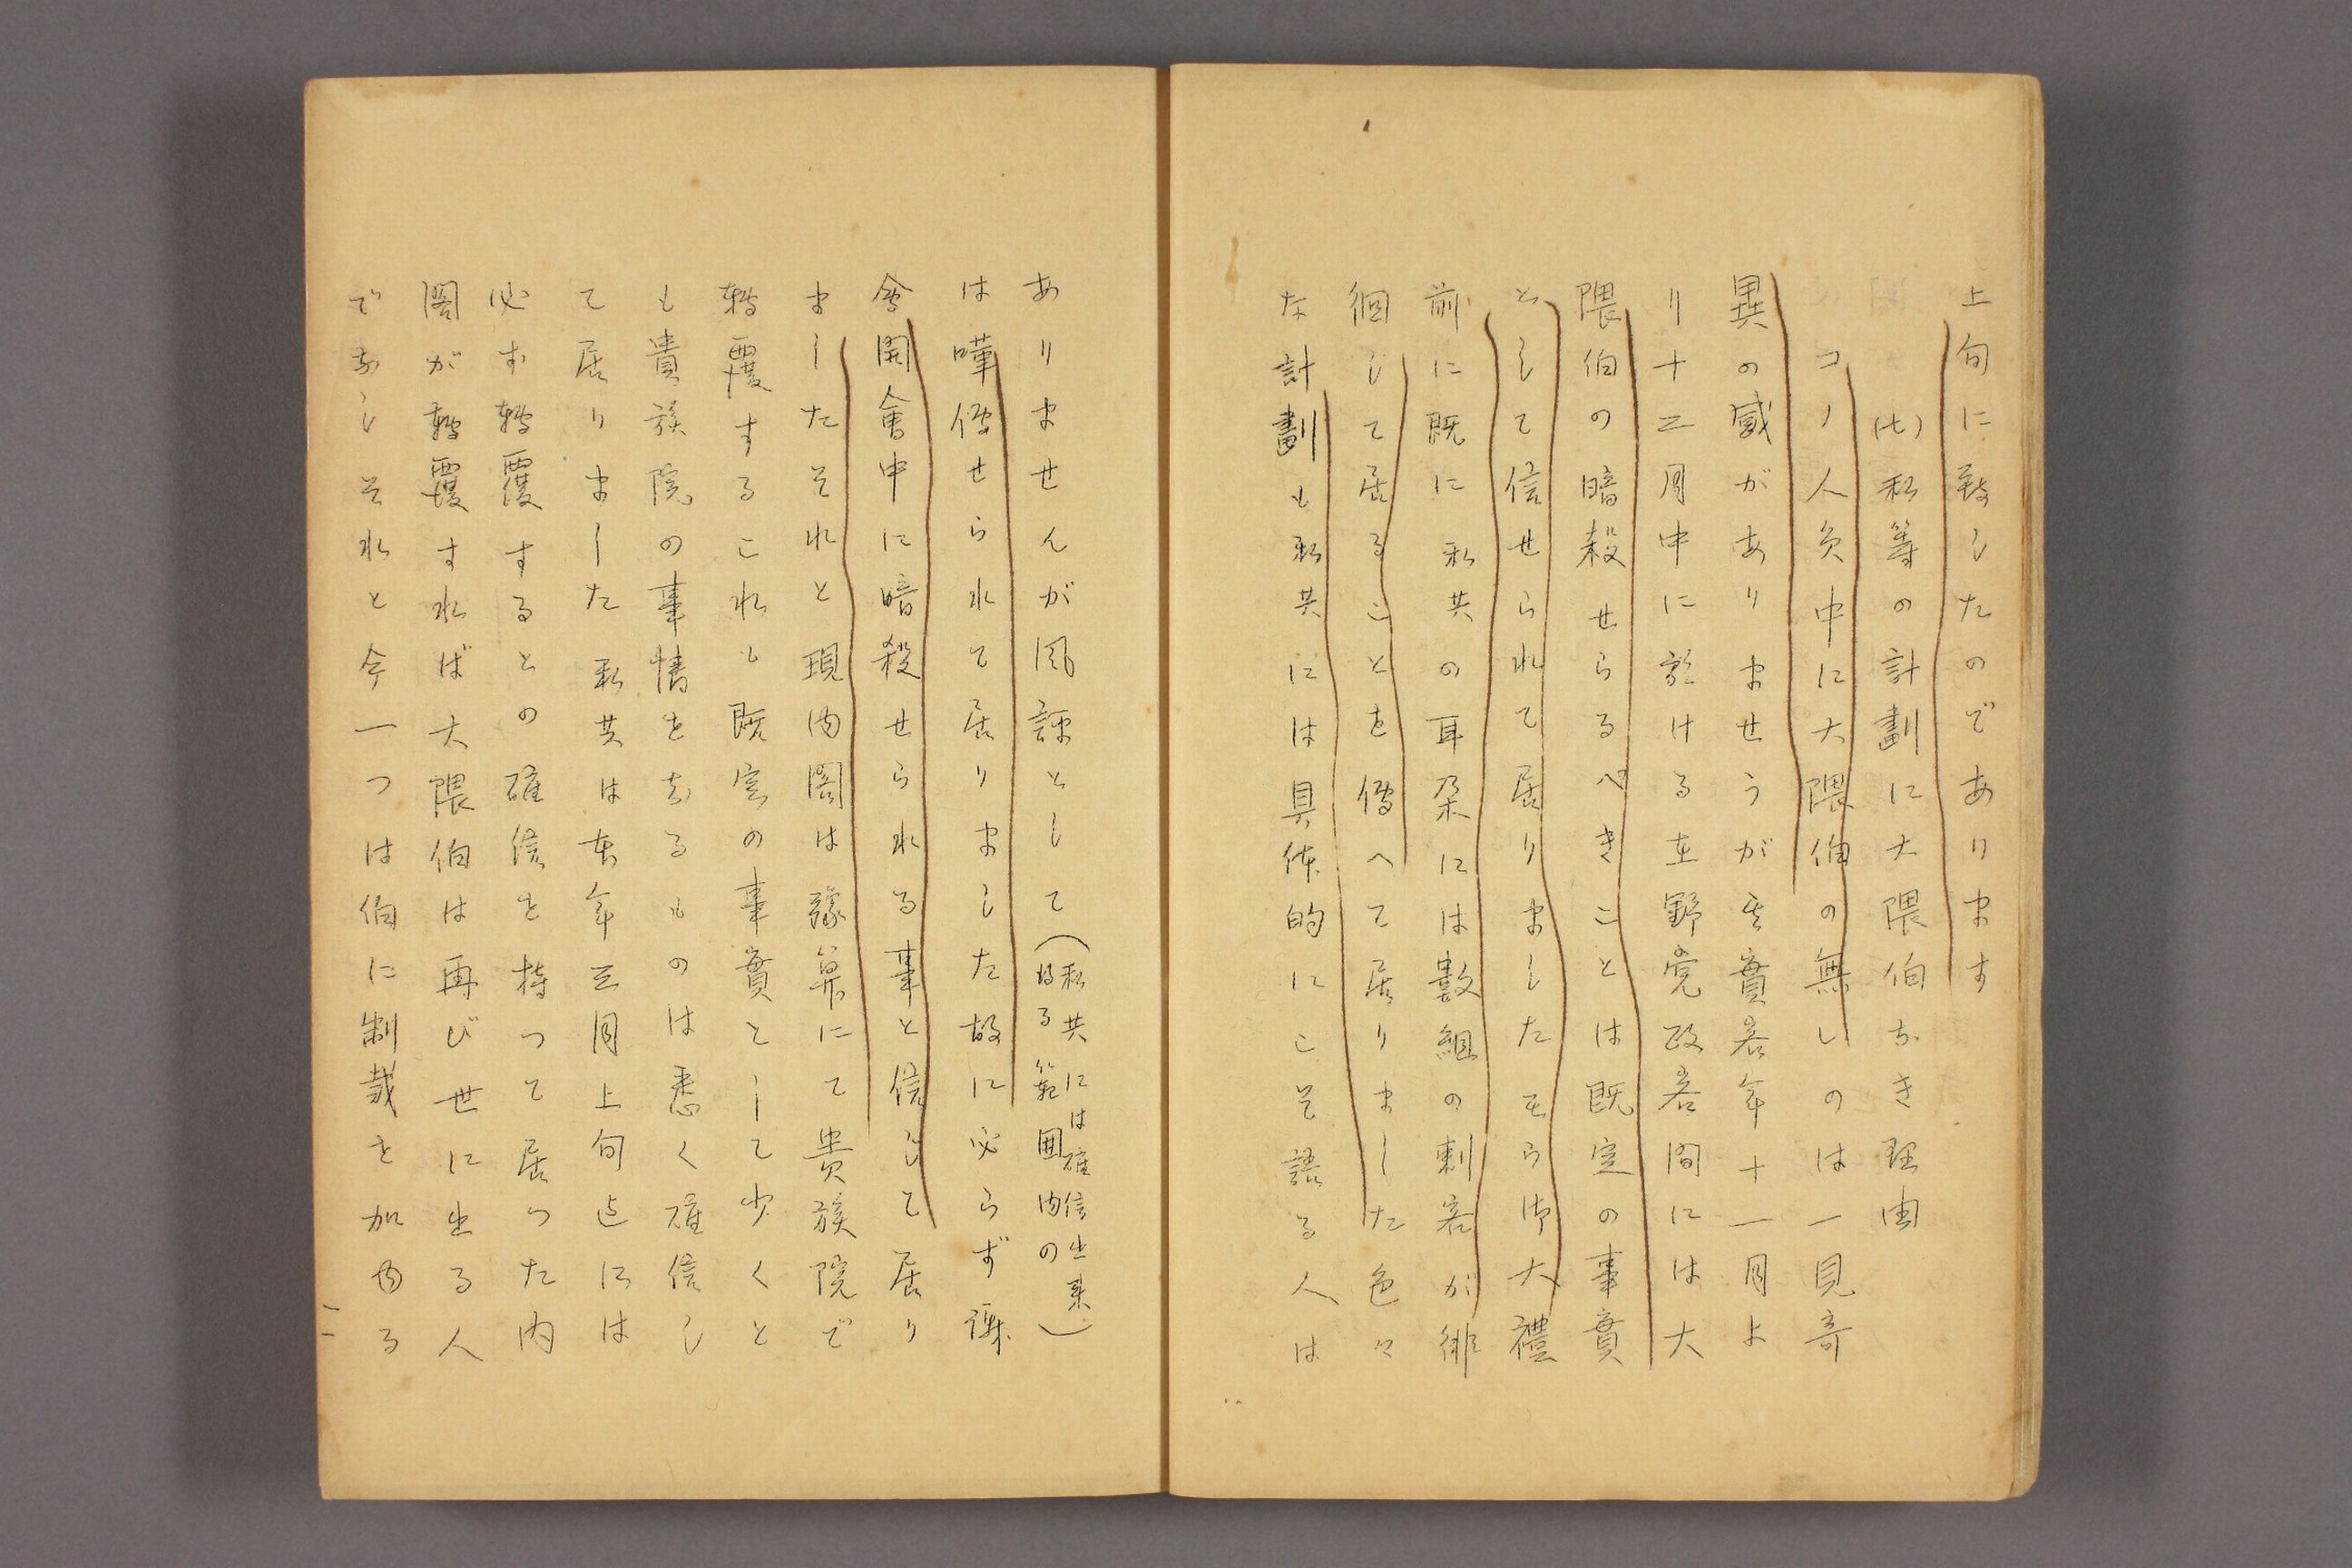 上旬に致したのであります
(七)私等の計劃に大隈伯なき理由
コノ人員中に大隈伯の無いのは一見奇
異の感がありませうが其實客年十一月よ
り十二月中に於ける在野党政客間には大
隈伯の暗殺せらるべきことは既定の事實
として信せられて居りましたそら御大禮
前に既に私共の耳朶には數組の刺客が徘
徊して居ることを傳へて居りました色々
な計劃も私共には具体的にこそ語る人は
ありませんが風評として(私共には確信出来得る範囲内の)
は嘩傳せられて居りました故に必らず議
會開會中に暗殺せられる事と信じて居り
ましたそれと現内閣は豫算にて貴族院で
轉覆するこれも既定の事實として少くと
も貴族院の事情を知るものは悉く確信し
て居りました私共は本年三月上旬迄には
必ず轉覆するとの確信を持つて居つた内
閣が轉覆すれば大隈伯は再び世に出る人
でなしそれと今一つは伯に制裁を加ゆる